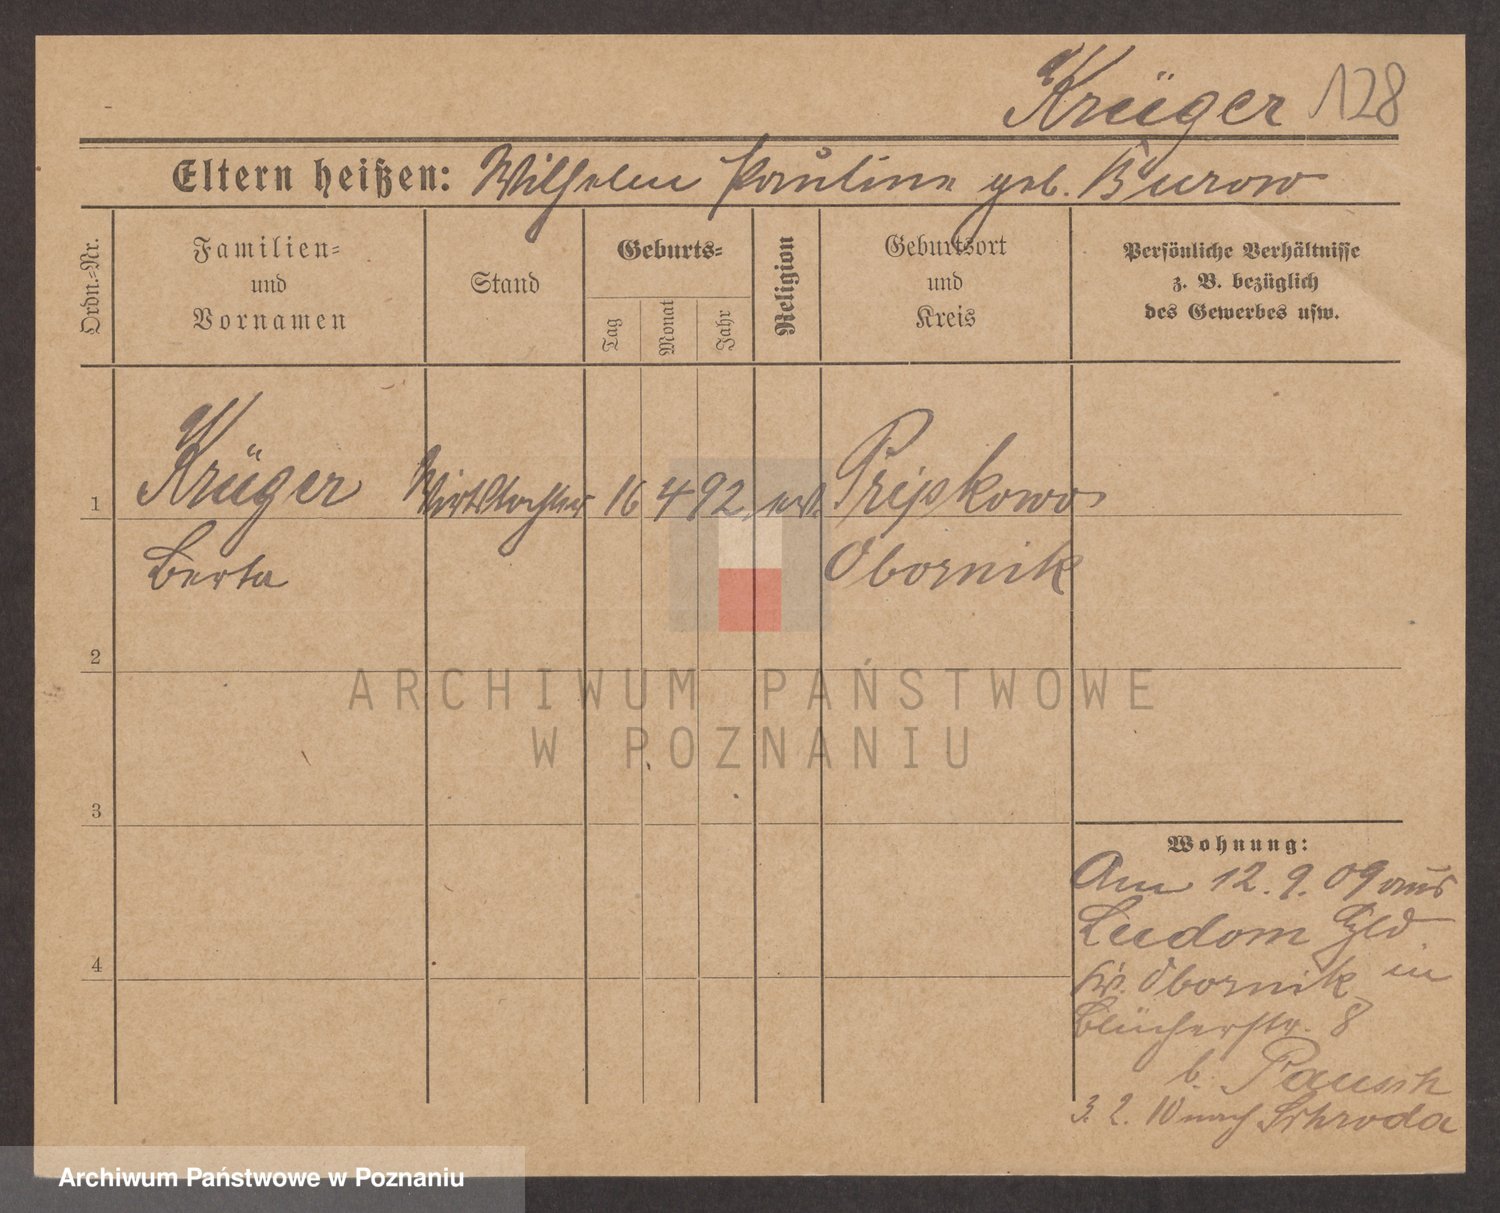 Krüger 128
Eltern heißen: Wilhelm Pauline geb. Burow
Ordn.-Nr.
Familien-
und
Vornamen
Stand
Geburts-
Tag
Monat
Jahr
Religion
Geburtsort
und
Kreis
Persönliche Verhältnisse
z. B. bezüglich
des Gewerbes usw.
1
Krüger
Berta
Wirtstochter
16 4 92
Pripkowo
Obornik
2
3
4
Wohnung:
Am 12. 9. 09 aus
Ludom Gld.
Kr. Obornik in
Blücherstr. 8
b. Pausch
3. 2. 10 nach Schroda
ARCHIWUM PAŃSTWOWE
W POZNANIU
Archiwum Państwowe w Poznaniu